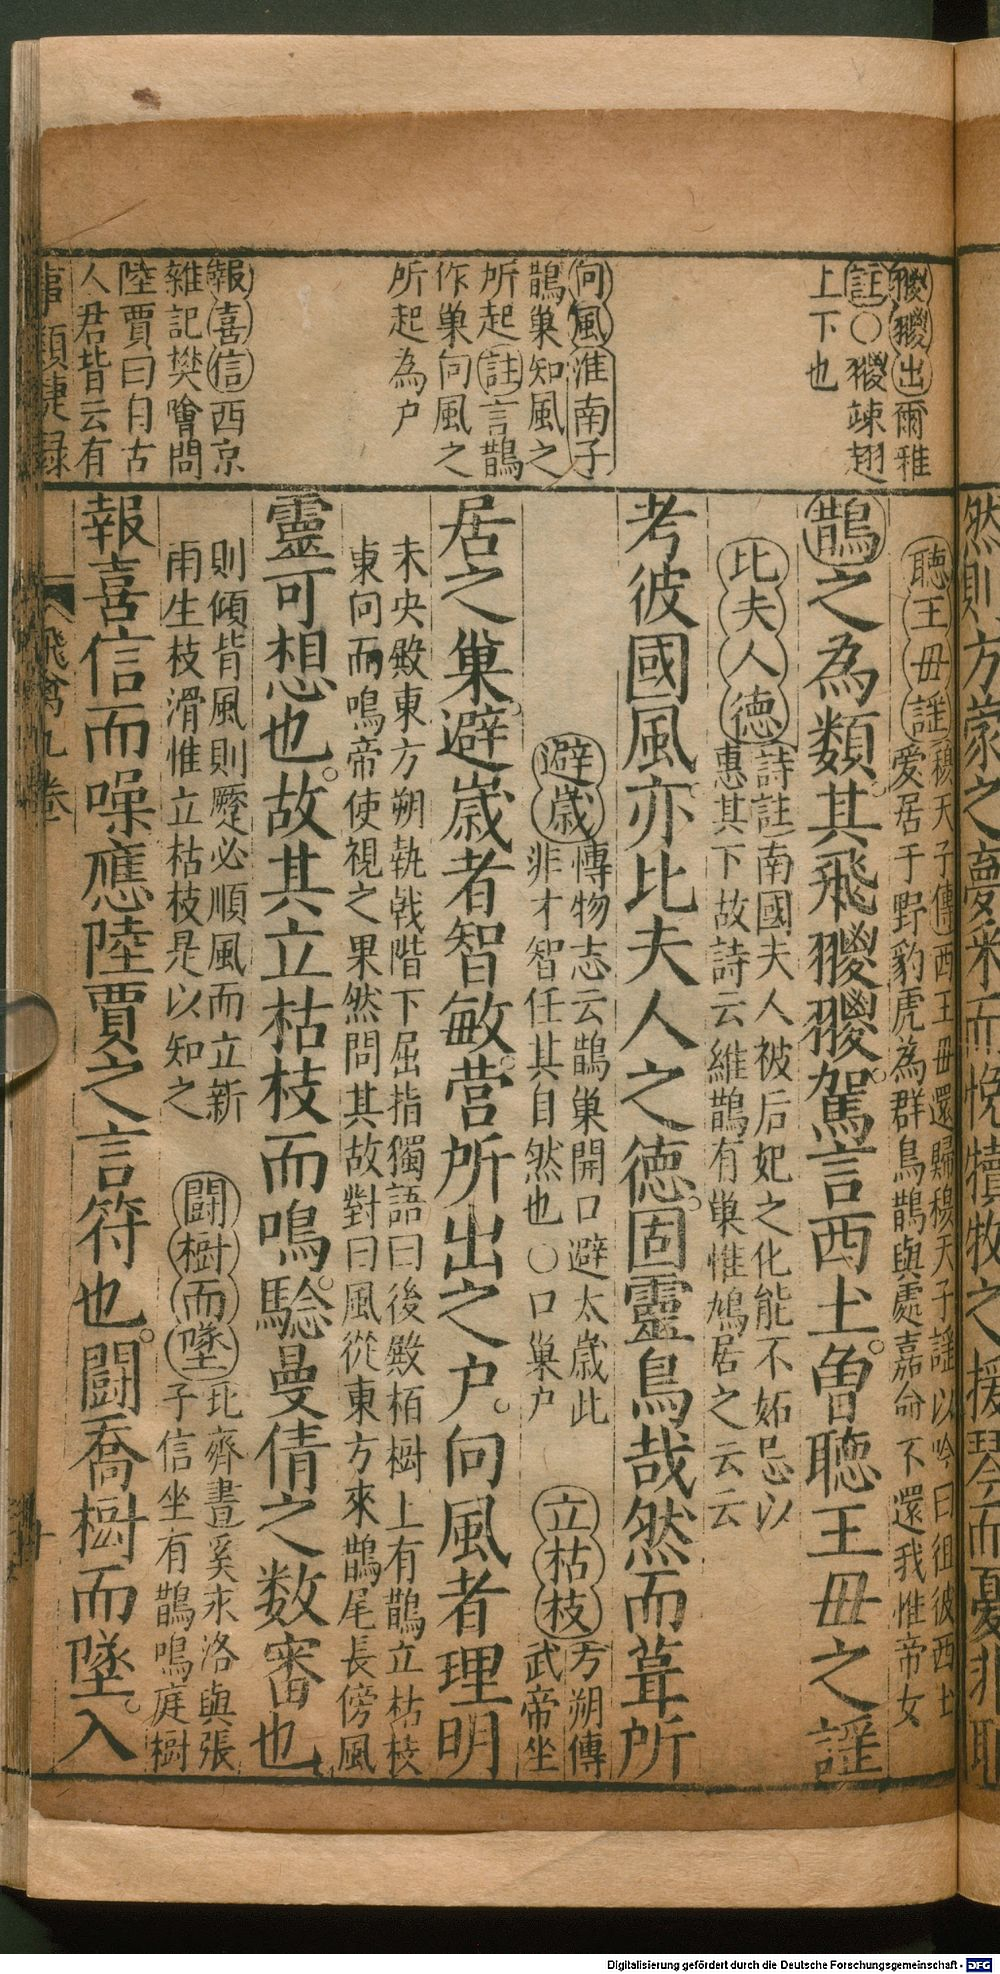 翪翪出爾雅
註○翪竦翅
上下也
向風淮南子
鵲巢知風之
所起註言鵲
作巢向風之
所起為户
報喜信西京
雜記樊噲問
陸賈曰自古
人君皆云有
然則方蒙之夢釆而悅犢牧之援琴而憂非耶
聽王毋謡穆天子傳西王毋還歸穆天子謡以吟曰徂彼西土
爰居于野豹虎為群鳥鵲與處嘉命不還我惟帝女
鵲之為類其飛翪翪駕言西土魯聽王毋之謡
比夫人德詩註南國夫人被后妃之化能不妬忌以
惠其下故詩云維鵲有巢惟鳩居之云云
考彼國風亦比夫人之德固靈鳥哉然而葺所
避歲愽物志云鵲巢開口避太歲此
非才智任其自然也○口巢户
立枯枝方朔傳
武帝坐
居之巢避歲者智敏營所出之户向風者理明
未央殿東方朔執戟階下屈指獨語曰後殿栢樹上有鵲立枯枝
東向而鳴帝使視之果然問其故對曰風從東方來鵲尾長傍風
靈可想也故其立枯枝而鳴騐曼倩之数審也
則傾背風則蹷必順風而立新
雨生枝滑惟立枯枝是以知之
鬬樹而墜北齊晝奚永洛與張
子信坐有鵲鳴庭樹
報喜信而噪應陸賈之言符也鬬喬樹而墜入
事類捷録
飛禽九卷
Digitalisierung gefördert durch die Deutsche Forschungsgemeinschaft - DFG